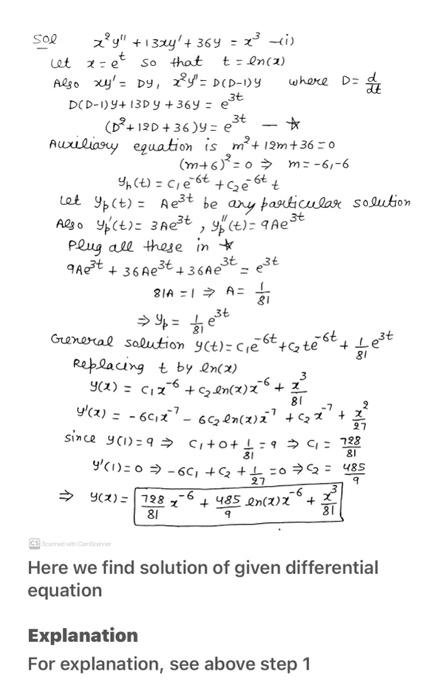 Sol x²y'' + 13xy' + 36y = x³ —(i)
Let x = e^t so that t = ln(x)
Also xy' = Dy, x²y'' = D(D-1)y where D = d/dt
D(D-1)y + 13Dy + 36y = e^3t
(D² + 12D + 36)y = e^3t — ☆
Auxiliary equation is m² + 12m + 36 = 0
(m+6)² = 0 ⇒ m = -6, -6
y_h(t) = c₁e^-6t + c₂e^-6t t
Let y_p(t) = Ae^3t be any particular solution
Also y_p'(t) = 3Ae^3t, y_p''(t) = 9Ae^3t
Plug all these in ☆
9Ae^3t + 36Ae^3t + 36Ae^3t = e^3t
81A = 1 ⇒ A = 1/81
⇒ y_p = 1/81 e^3t
General solution y(t) = c₁e^-6t + c₂te^-6t + 1/81 e^3t
Replacing t by ln(x)
y(x) = c₁x^-6 + c₂ln(x)x^-6 + x³/81
y'(x) = -6c₁x^-7 - 6c₂ln(x)x^-7 + c₂x^-7 + x²/27
since y(1) = 9 ⇒ c₁ + 0 + 1/81 = 9 ⇒ c₁ = 728/81
y'(1) = 0 ⇒ -6c₁ + c₂ + 1/27 = 0 ⇒ c₂ = 485/9
⇒ y(x) = 728/81 x^-6 + 485/9 ln(x)x^-6 + x³/81
CS Scanned with CamScanner
Here we find solution of given differential
equation
Explanation
For explanation, see above step 1